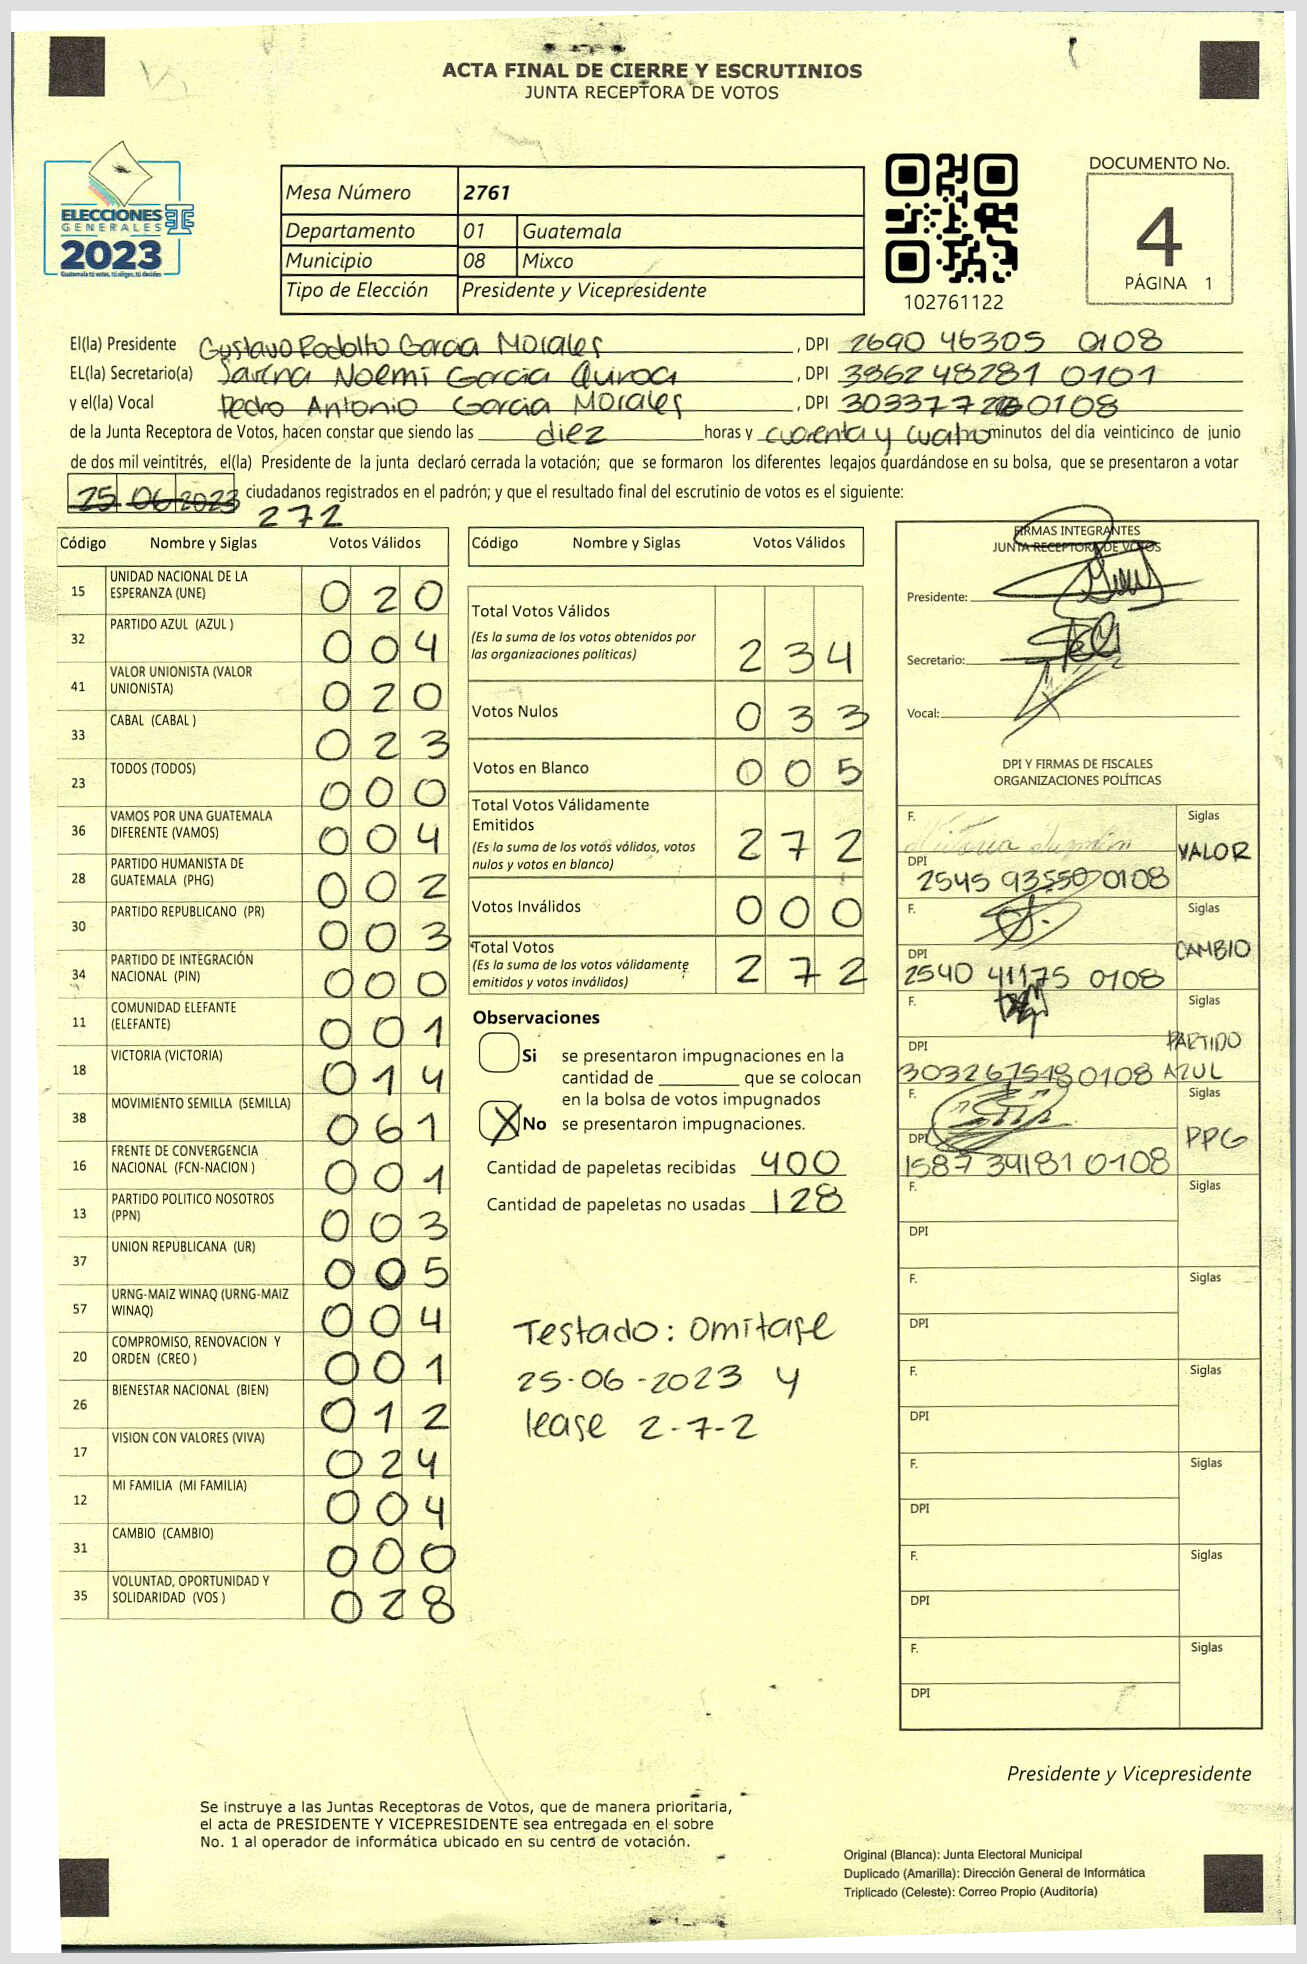 ACTA FINAL DE CIERRE Y ESCRUTINIOS
JUNTA RECEPTORA DE VOTOS
ELECCIONES
GENERALES
2023
Guatemala tú votas, tú eliges, tú decides
Mesa Número 2761
Departamento 01 Guatemala
Municipio 08 Mixco
Tipo de Elección Presidente y Vicepresidente
102761122
DOCUMENTO No.
4
PÁGINA 1
El(la) Presidente Gustavo Rodolfo Garcia Morales, DPI 2690 46305 0108
EL(la) Secretario(a) Noemi Garcia, DPI 3862 48281 0101
y el(la) Vocal Pedro Antonio Garcia Morales, DPI 0108
de la Junta Receptora de Votos, hacen constar que siendo las diez horas y cuarenta y cuatro minutos del día veinticinco de junio
de dos mil veintitrés, el(la) Presidente de la junta declaró cerrada la votación; que se formaron los diferentes legajos guardándose en su bolsa, que se presentaron a votar
25 06 2023 ciudadanos registrados en el padrón; y que el resultado final del escrutinio de votos es el siguiente:
272
Código Nombre y Siglas Votos Válidos
15 UNIDAD NACIONAL DE LA ESPERANZA (UNE) 020
32 PARTIDO AZUL (AZUL ) 004
41 VALOR UNIONISTA (VALOR UNIONISTA) 020
33 CABAL (CABAL ) 023
23 TODOS (TODOS) 000
36 VAMOS POR UNA GUATEMALA DIFERENTE (VAMOS) 004
28 PARTIDO HUMANISTA DE GUATEMALA (PHG) 002
30 PARTIDO REPUBLICANO (PR) 003
34 PARTIDO DE INTEGRACIÓN NACIONAL (PIN) 000
11 COMUNIDAD ELEFANTE (ELEFANTE) 001
18 VICTORIA (VICTORIA) 014
38 MOVIMIENTO SEMILLA (SEMILLA) 061
16 FRENTE DE CONVERGENCIA NACIONAL (FCN-NACION ) 001
13 PARTIDO POLITICO NOSOTROS (PPN) 003
37 UNION REPUBLICANA (UR) 005
57 URNG-MAIZ WINAQ (URNG-MAIZ WINAQ) 004
20 COMPROMISO, RENOVACION Y ORDEN (CREO ) 001
26 BIENESTAR NACIONAL (BIEN) 012
17 VISION CON VALORES (VIVA) 024
12 MI FAMILIA (MI FAMILIA) 004
31 CAMBIO (CAMBIO) 000
35 VOLUNTAD, OPORTUNIDAD Y SOLIDARIDAD (VOS ) 028
Código Nombre y Siglas Votos Válidos
Total Votos Válidos
(Es la suma de los votos obtenidos por las organizaciones políticas) 234
Votos Nulos 033
Votos en Blanco 005
Total Votos Válidamente Emitidos
(Es la suma de los votos válidos, votos nulos y votos en blanco) 272
Votos Inválidos 000
Total Votos
(Es la suma de los votos válidamente emitidos y votos inválidos) 272
Observaciones
Si se presentaron impugnaciones en la
cantidad de ________ que se colocan
en la bolsa de votos impugnados
X No se presentaron impugnaciones.
Cantidad de papeletas recibidas 400
Cantidad de papeletas no usadas 128
Testado: Omitase
25-06-2023 y
lease 2-7-2
FIRMAS INTEGRANTES
JUNTA RECEPTORA DE VOTOS
Presidente:
Secretario:
Vocal:
DPI Y FIRMAS DE FISCALES
ORGANIZACIONES POLÍTICAS
F. Siglas
VALOR
DPI
2545 93550 0108
F. Siglas
CAMBIO
DPI
2540 41175 0108
F. Siglas
PARTIDO
AZUL
DPI
0108
F. Siglas
PPG
DPI
1587 39181 0108
F. Siglas
DPI
F. Siglas
DPI
F. Siglas
DPI
F. Siglas
DPI
F. Siglas
DPI
F. Siglas
DPI
Presidente y Vicepresidente
Se instruye a las Juntas Receptoras de Votos, que de manera prioritaria,
el acta de PRESIDENTE Y VICEPRESIDENTE sea entregada en el sobre
No. 1 al operador de informática ubicado en su centro de votación.
Original (Blanca): Junta Electoral Municipal
Duplicado (Amarilla): Dirección General de Informática
Triplicado (Celeste): Correo Propio (Auditoría)